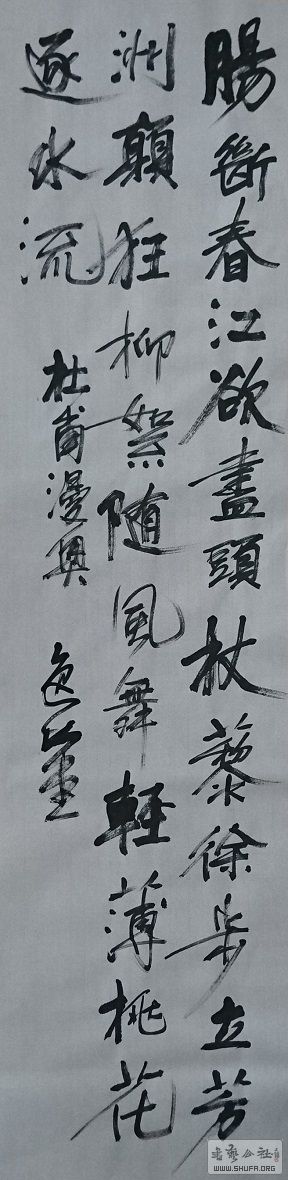 腸斷春江欲盡頭杖藜徐步立芳
洲顛狂柳絮随風舞輕薄桃花
逐水流
杜甫漫興
書藝公社
WWW.SHUFA.ORG